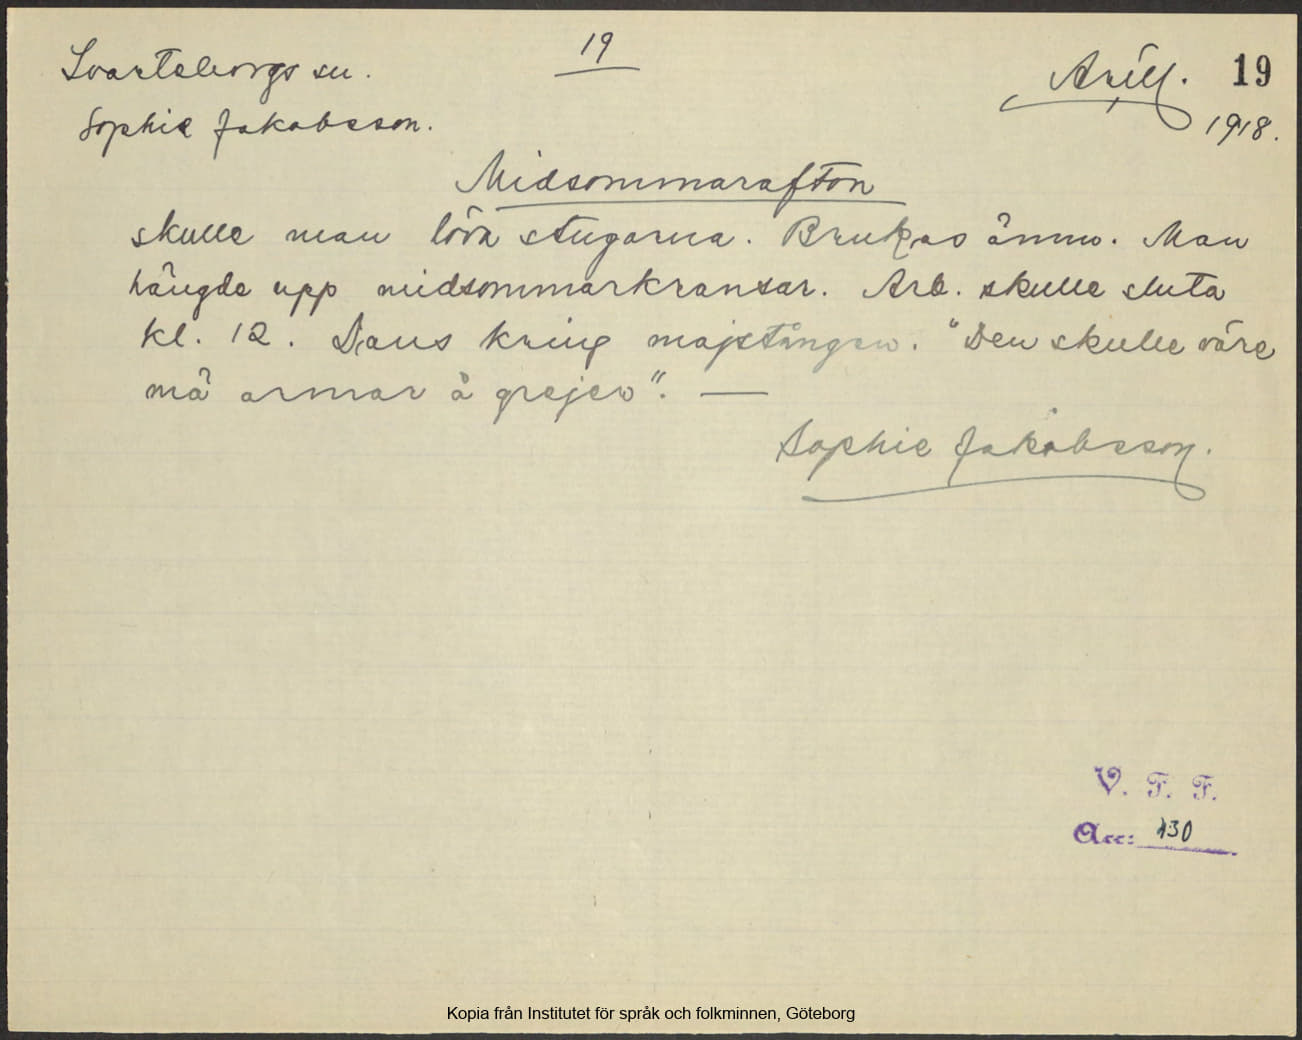 Svarteborgs sn.
19
Arill. 19
Sophie Jakobsson.
1918.
Midsommarafton
skulle man löva stugorna. Brukas ännu. Man
hängde upp midsommarkransar. Arb. skulle sluta
kl. 12. Dans kring majstången. "Den skulle väre
mä armar å grejer". —
Sophie Jakobsson.
V. F. F.
Acc: 130
Kopia från Institutet för språk och folkminnen, Göteborg